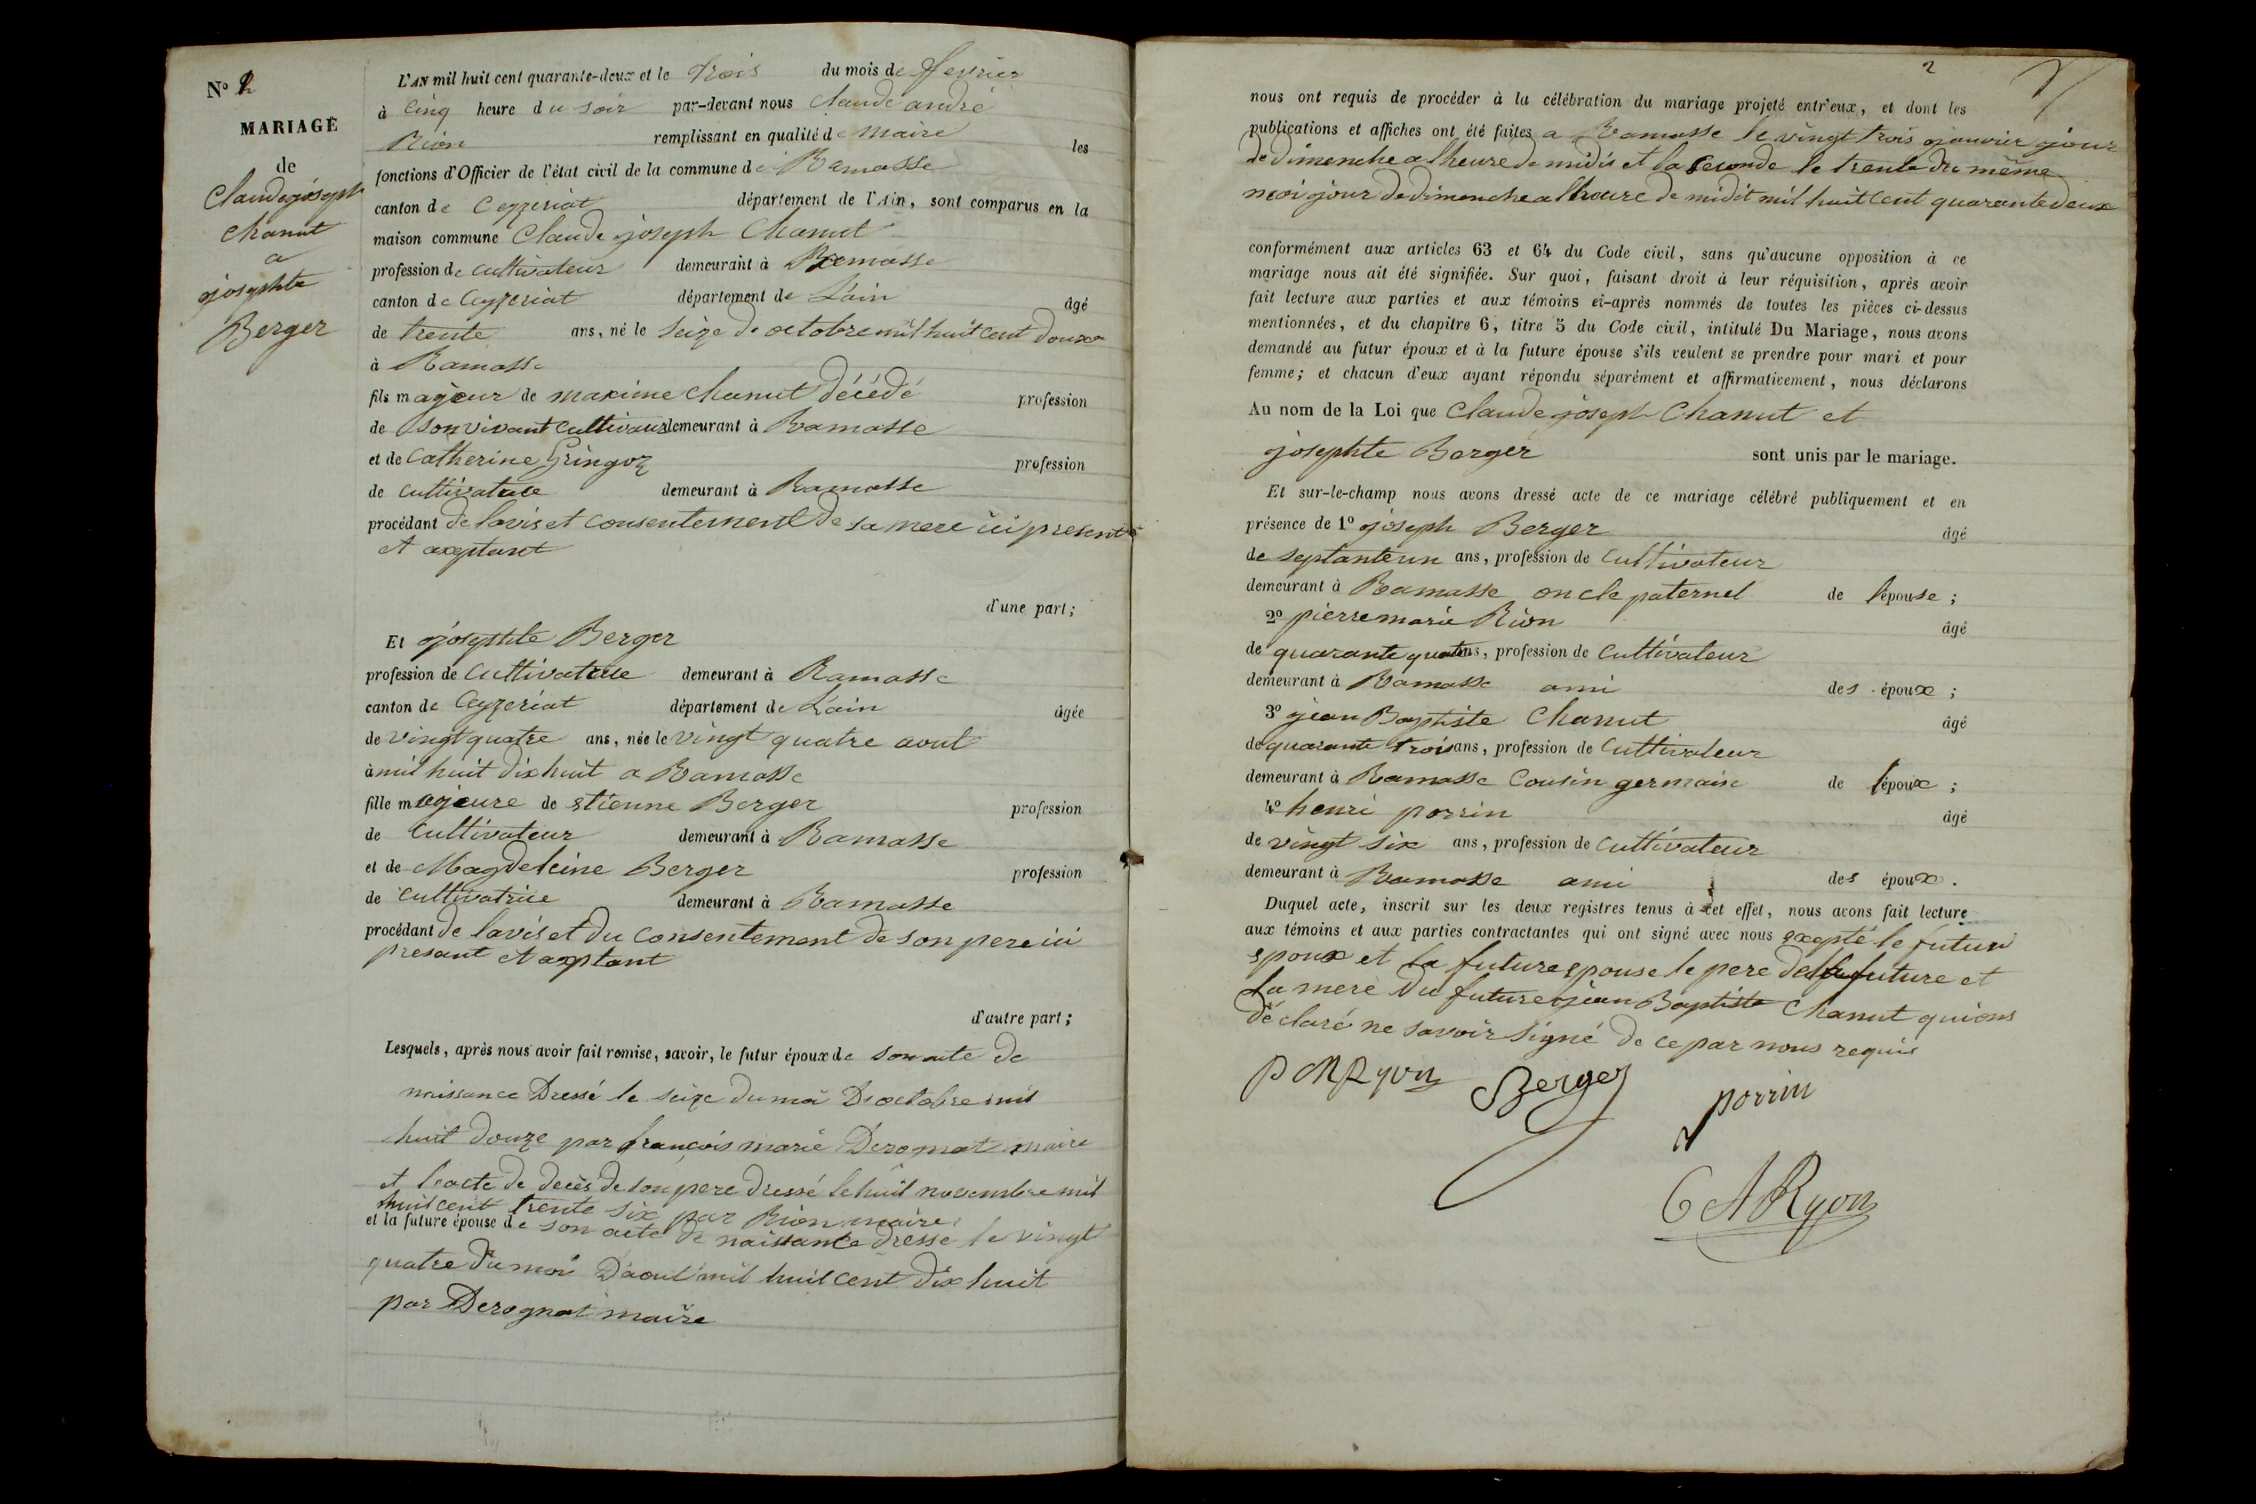 N° 2
MARIAGE
de
Claude joseph
Chanut
a
josephte
Berger
L'AN mil huit cent quarante-deux et le trois du mois de fevrier
à Cinq heure du soir par-devant nous Claude andré
Rion remplissant en qualité de maire les
fonctions d'Officier de l'état civil de la commune de Ramasse
canton de Ceyzeriat département de l'Ain, sont comparus en la
maison commune Claude joseph Chanut
profession de cultivateur demeurant à Ramasse
canton de Ceyzeriat département de L'ain âgé
de trente ans, né le seize de octobre mil huit cent douze
à Ramasse
fils majeur de maxime Chanut décédé profession
de son vivant cultivateur demeurant à Ramasse
et de Catherine Gringoz profession
de cultivatrice demeurant à Ramasse
procédant de lavis et consentement de sa mere ici presente
et axeptant
d'une part;
Et josephte Berger
profession de Cultivatrice demeurant à Ramasse
canton de Ceyzeriat département de L'ain âgée
de vingt quatre ans, née le vingt quatre aout
à mil huit dix huit a Ramasse
fille majeure de etienne Berger profession
de Cultivateur demeurant à Ramasse
et de Magdeleine Berger profession
de cultivatrice demeurant à Ramasse
procédant de lavis et du consentement de son pere ici
present et axptant
d'autre part;
Lesquels, après nous avoir fait remise, savoir, le futur époux de son acte de
naissance Dressé le seize du moi D'octobre mil
huit douze par françois marie Derognat maire
et l'acte de decès de son pere dressé le huit novembre mil
huit cent trente six par Rion maire
et la future épouse de son acte de naissance dressé le vingt
quatre du moi D'aout mil huit cent dix huit
par Derognat maire
2
nous ont requis de procéder à la célébration du mariage projeté entr'eux, et dont les
publications et affiches ont été faites a Ramasse le vingt trois janvier jour
de dimenche a lheure de midis et la seconde le trente du même
moi jour de dimenche a lheure de midit mil huit cent quarante deux
conformément aux articles 63 et 64 du Code civil, sans qu'aucune opposition à ce
mariage nous ait été signifiée. Sur quoi, faisant droit à leur réquisition, après avoir
fait lecture aux parties et aux témoins ci-après nommés de toutes les pièces ci-dessus
mentionnées, et du chapitre 6, titre 5 du Code civil, intitulé Du Mariage, nous avons
demandé au futur époux et à la future épouse s'ils veulent se prendre pour mari et pour
femme; et chacun d'eux ayant répondu séparément et affirmativement, nous déclarons
Au nom de la Loi que Claude joseph Chanut et
josephte Berger sont unis par le mariage.
Et sur-le-champ nous avons dressé acte de ce mariage célébré publiquement et en
présence de 1° joseph Berger âgé
de septante un ans, profession de Cultivateur
demeurant à Ramasse oncle paternel de l'épouse;
2° pierre marie Rion âgé
de quarante quatre ans, profession de Cultivateur
demeurant à Ramasse ami des époux;
3° jean Baptiste Chanut âgé
de quarante trois ans, profession de Cultivateur
demeurant à Ramasse Cousin germain de l'époux;
4° henri porrin âgé
de vingt six ans, profession de Cultivateur
demeurant à Ramasse ami des époux.
Duquel acte, inscrit sur les deux registres tenus à cet effet, nous avons fait lecture
aux témoins et aux parties contractantes qui ont signé avec nous exepté le futur
epoux et la future epouse le pere de la future et
La mere du future jean Baptiste Chanut qui ons
déclaré ne savoir signé de ce par nous requis
P M Ryon Berger porrin
C A Ryon